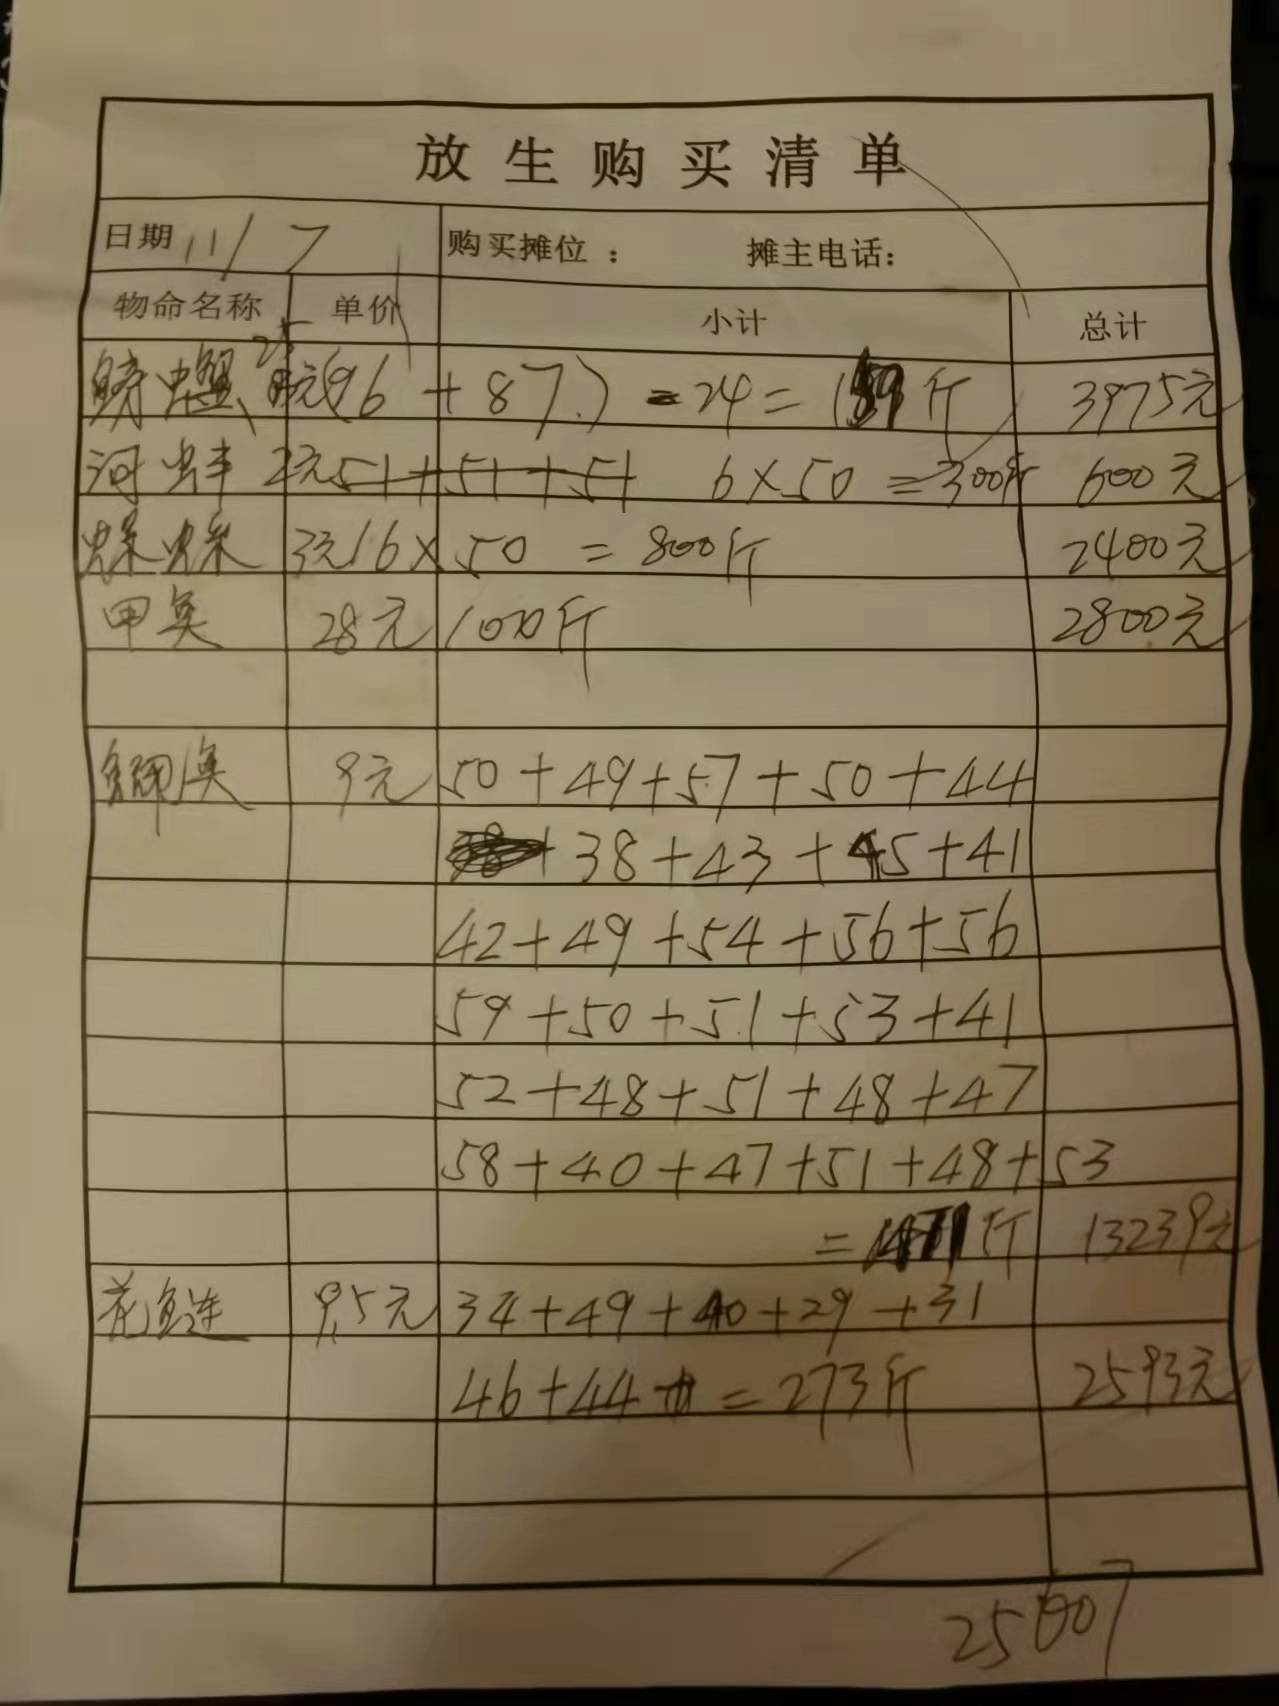 放生购买清单
日期 11/7 购买摊位： 摊主电话：
物命名称 单价 小计 总计
螃蟹 25元(96+87)-24=159斤 3975元
河蚌 2元 51+51+51 6×50=300斤 600元
螺蛳 3元 16×50=800斤 2400元
甲鱼 28元 100斤 2800元
鳊鱼 9元 50+49+57+50+44
+38+43+45+41
42+49+54+56+56
59+50+51+53+41
52+48+51+48+47
58+40+47+51+48+53
=1471斤 13239元
花鲢 9.5元 34+49+40+29+31
46+44=273斤 2593元
25607